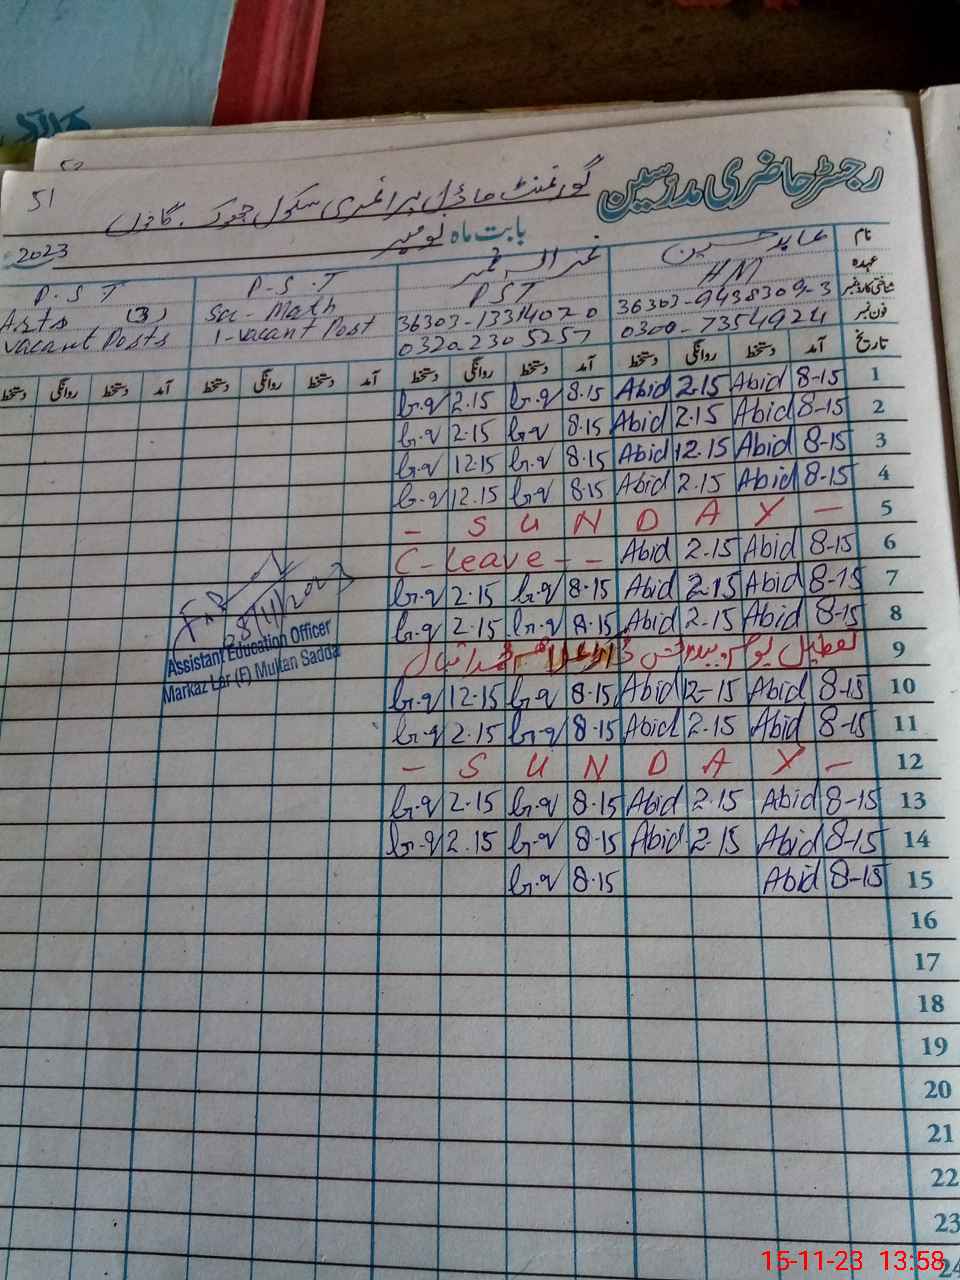 51
رجسٹر حاضری مدرسین
گورنمنٹ ماڈل پرائمری سکول چوک
بابت ماہ نومبر 2023
نام عابد حسین
عہدہ HM PST P.S.T P.S.T
شناختی کارڈ نمبر 36303-9438309-3 36303-1331402-0 Sci-Math Arts (3)
فون نمبر 0300-7354924 0320 2305257 1-vacant Post vacant Posts
تاریخ آمد دستخط روانگی دستخط آمد دستخط روانگی دستخط آمد دستخط روانگی دستخط آمد دستخط روانگی دستخط
1 8-15 Abid 2.15 Abid 8.15 2.15
2 8-15 Abid 2.15 Abid 8.15 2.15
3 8-15 Abid 12.15 Abid 8.15 12.15
4 8-15 Abid 2.15 Abid 8.15 12.15
5 - S U N D A Y -
6 8-15 Abid 2.15 Abid C-Leave - -
7 8-15 Abid 2.15 Abid 8.15 2.15
8 8-15 Abid 2.15 Abid 8.15 2.15
9 تعطیل یوم پیدائش اقبال
10 8-15 Abid 12-15 Abid 8.15 12.15
11 8-15 Abid 2.15 Abid 8.15 2.15
12 - S U N D A Y -
13 8-15 Abid 2.15 Abid 8.15 2.15
14 8-15 Abid 2.15 Abid 8.15 2.15
15 8-15 Abid 8.15
16
17
18
19
20
21
22
23
24
Assistant Education Officer
Markaz Lar (F) Multan Saddar
15-11-23 13:58